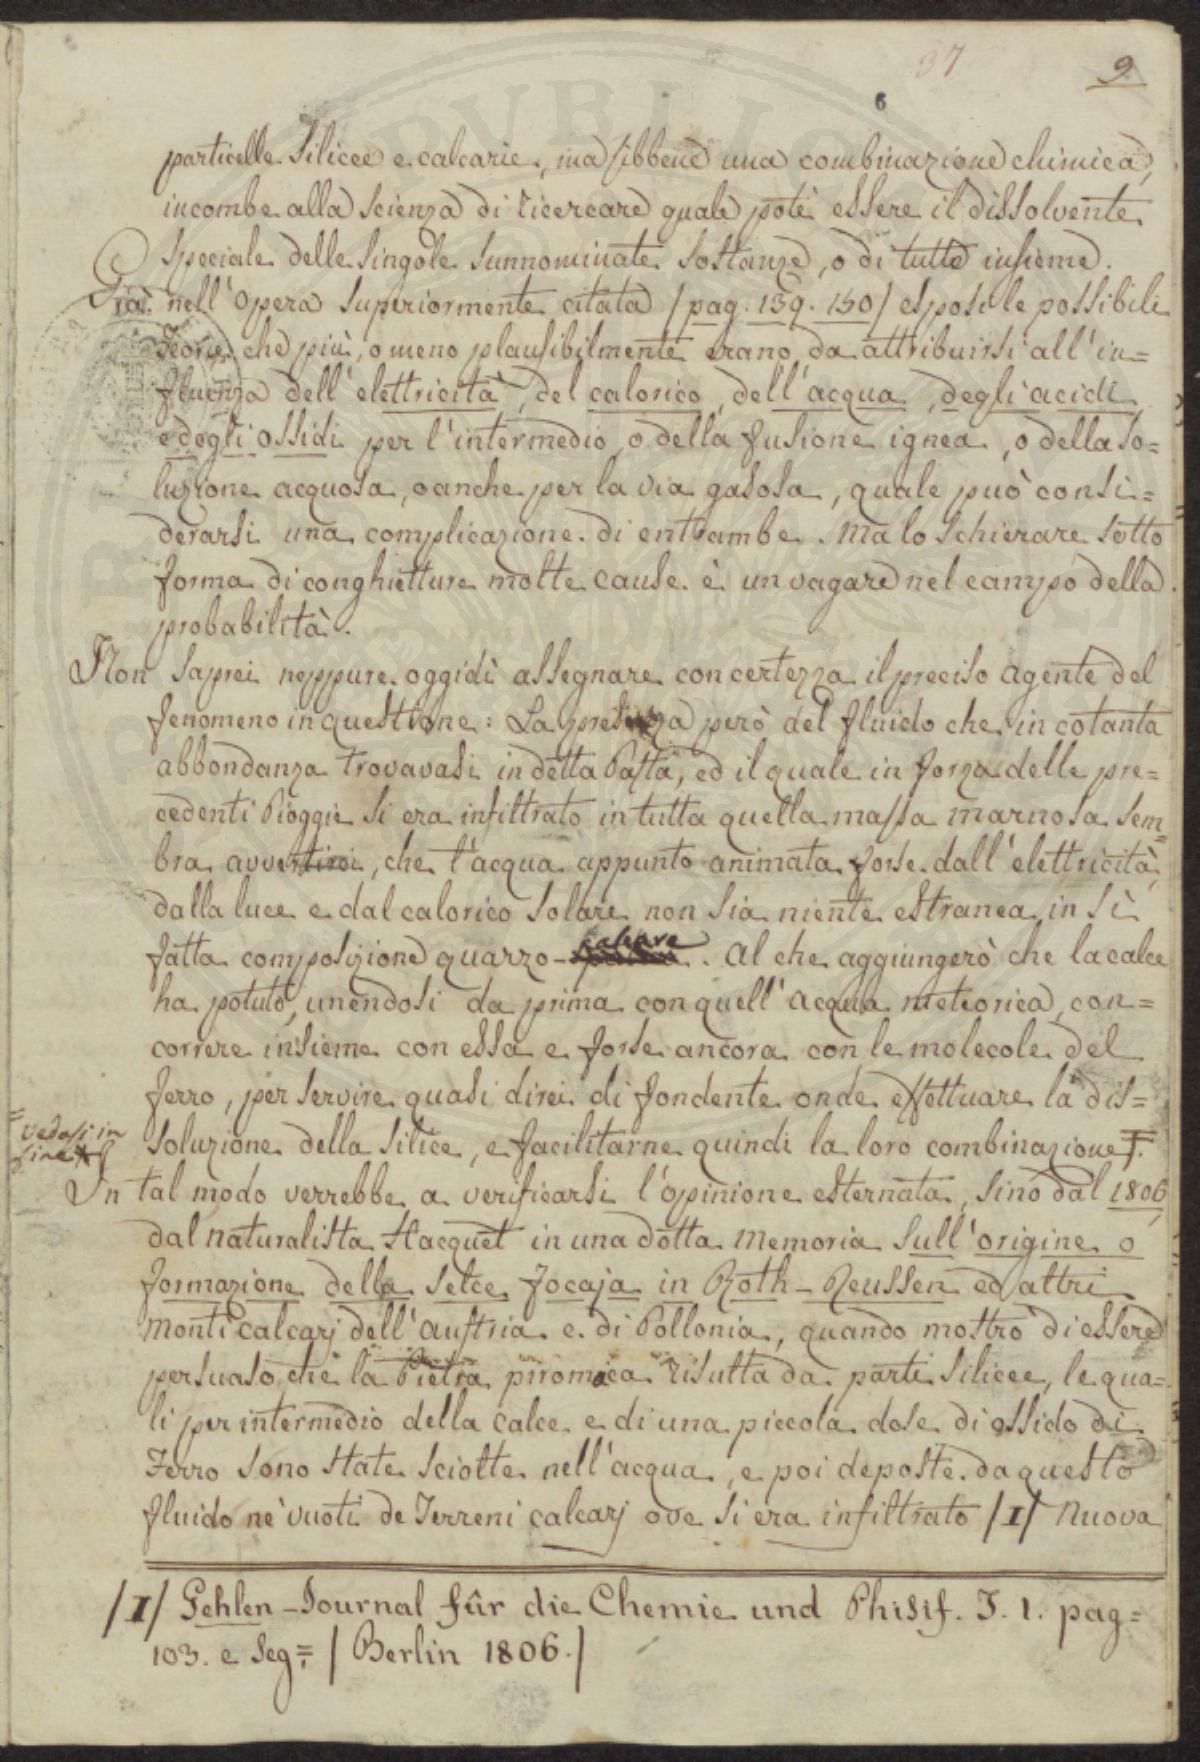 37
9.
6
particelle silicee e calcarie, ma sibbene una combinazione chimica,
incombe alla scienza di ricercare quale potè essere il dissolvente
speciale delle singole sunnominate sostanze, o di tutte insieme.
Già nell'opera superiormente citata /pag. 139. 150/ esposi le possibili
teorie, che più, o meno plausibilmente erano da attribuirsi all'in=
fluenza dell'elettricità, del calorico, dell'acqua, degli acidi,
e degli ossidi per l'intermedio, o della fusione ignea, o della so=
luzione acquosa, o anche per la via gasosa, quale può consi=
derarsi una complicazione di entrambe. Ma lo schierare sotto
forma di conghietture molte cause è un vagare nel campo della
probabilità.
Non saprei neppure oggidì assegnare con certezza il preciso agente del
fenomeno in questione: La presenza però del fluido che in cotanta
abbondanza trovavasi in detta Pasta, ed il quale in forza delle pre=
cedenti Pioggie si era infiltrato in tutta quella massa marnosa sem=
bra avvertirci, che l'acqua appunto animata forse dall'elettricità,
dalla luce e dal calorico solare non sia niente estranea in sì
fatta composizione quarzo-calcare. Al che aggiungerò che la calce
ha potuto, unendosi da prima con quell'acqua meteorica, con=
correre insieme con essa e forse ancora con le molecole del
ferro, per servire quasi direi di fondente onde effettuare la dis=
soluzione della silice, e facilitarne quindi la loro combinazione.
= vedasi in
fine
In tal modo verrebbe a verificarsi l'opinione esternata, sino dal 1806,
dal naturalista Hacquet in una dotta memoria sull'origine o
formazione della selce focaja in Roth-Reussen ed altri
monti calcarj dell'Austria e di Pollonia, quando mostrò di essere
persuaso, che la Pietra piromaca risulta da parti silicee, le qua=
li per intermedio della calce e di una piccola dose di ossido di
Ferro sono state sciolte nell'acqua, e poi deposte da questo
fluido ne' vuoti de Terreni calcarj ove si era infiltrato /1/ Nuova
/1/ Gehlen-Journal fûr die Chemie und Phisif. T. 1. pag=
103. e seg= / Berlin 1806./